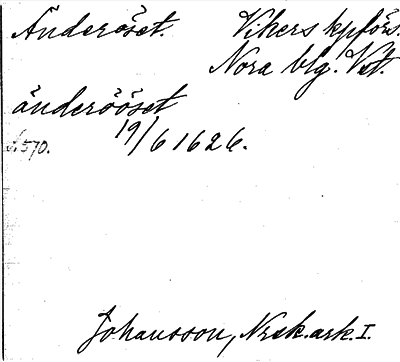 Änderöset. Vikers kpförs.
Nora blg. Vstm.
änderööset
19/6 1626.
s. 570.
Johansson, Nrsk. ark. I.